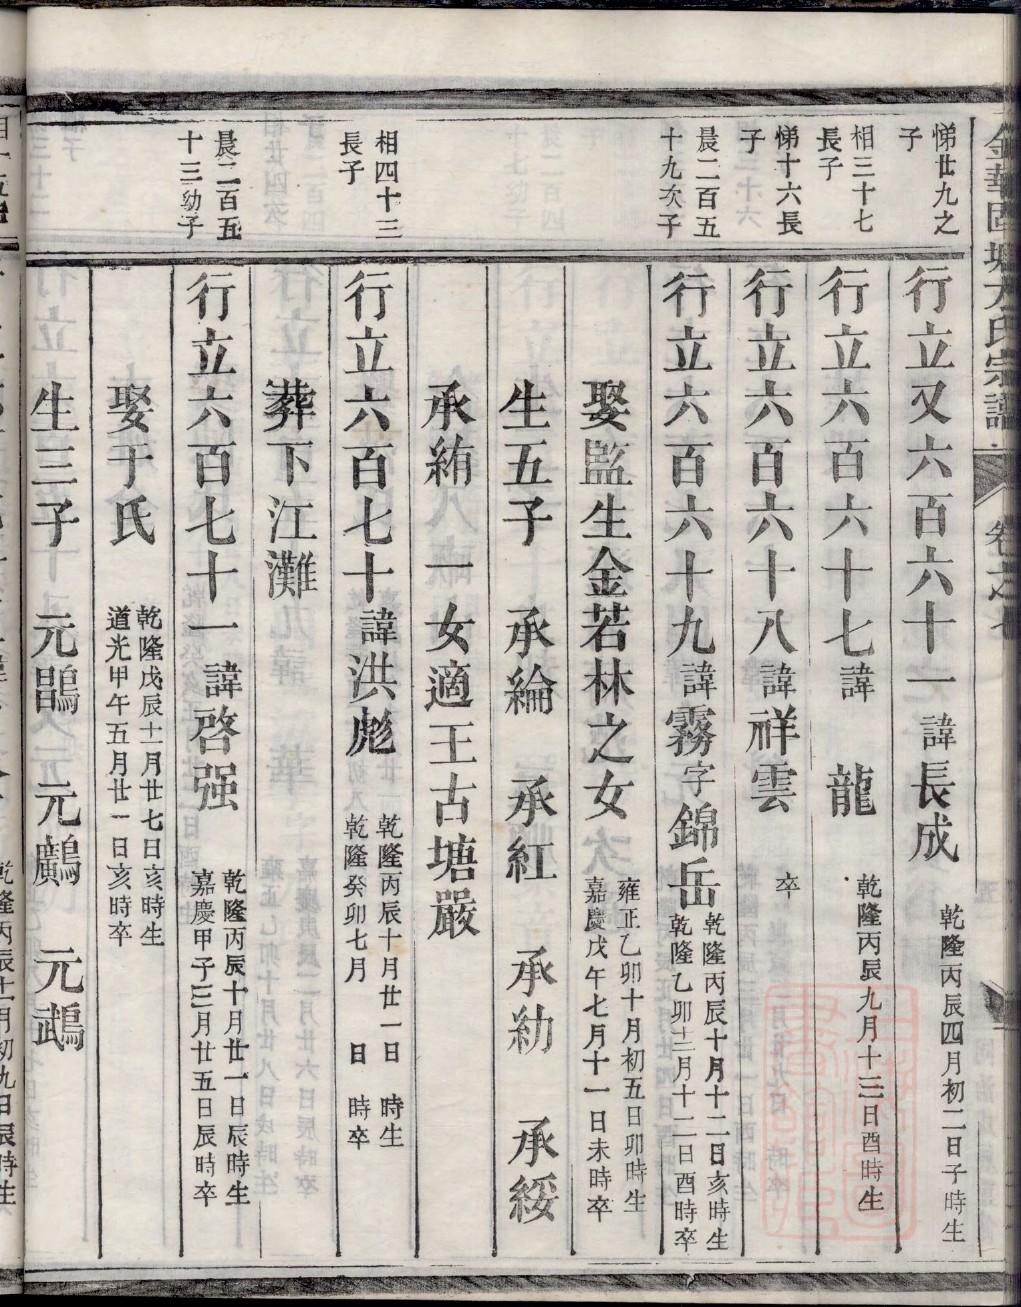 金華固塘方氏宗譜 卷之七
悌廿九之子
行立又六百六十一 諱長成 乾隆丙辰四月初二日子時生
相三十七長子
行立六百六十七 諱 龍 乾隆丙辰九月十三日酉時生
悌十六長子
行立六百六十八 諱祥雲 卒
晨二百五十九次子
行立六百六十九 諱霧 字錦岳 乾隆丙辰十月十二日亥時生 乾隆乙卯十二月十二日酉時卒
娶監生金若林之女 雍正乙卯十月初五日卯時生 嘉慶戊午七月十一日未時卒
生五子 承綸 承紅 承紨 承綏
承絠 一女適王古塘嚴
相四十三長子
行立六百七十 諱洪彪 乾隆丙辰十月廿一日 時生 乾隆癸卯七月 日 時卒
葬下江灘
晨二百五十三幼子
行立六百七十一 諱啓强 乾隆丙辰十月廿一日辰時生 嘉慶甲子三月廿五日辰時卒
娶于氏 乾隆戊辰十一月廿七日亥時生 道光甲午五月廿一日亥時卒
生三子 元鵾 元鷹 元鵡